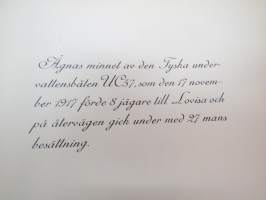 Ägnas minnet av den Tyska under
vattensbåten UC57, som den 17 novem-
ber 1917 förde 8 jägare till Lovisa och
på återvägen gick under med 27 mans
besättning.